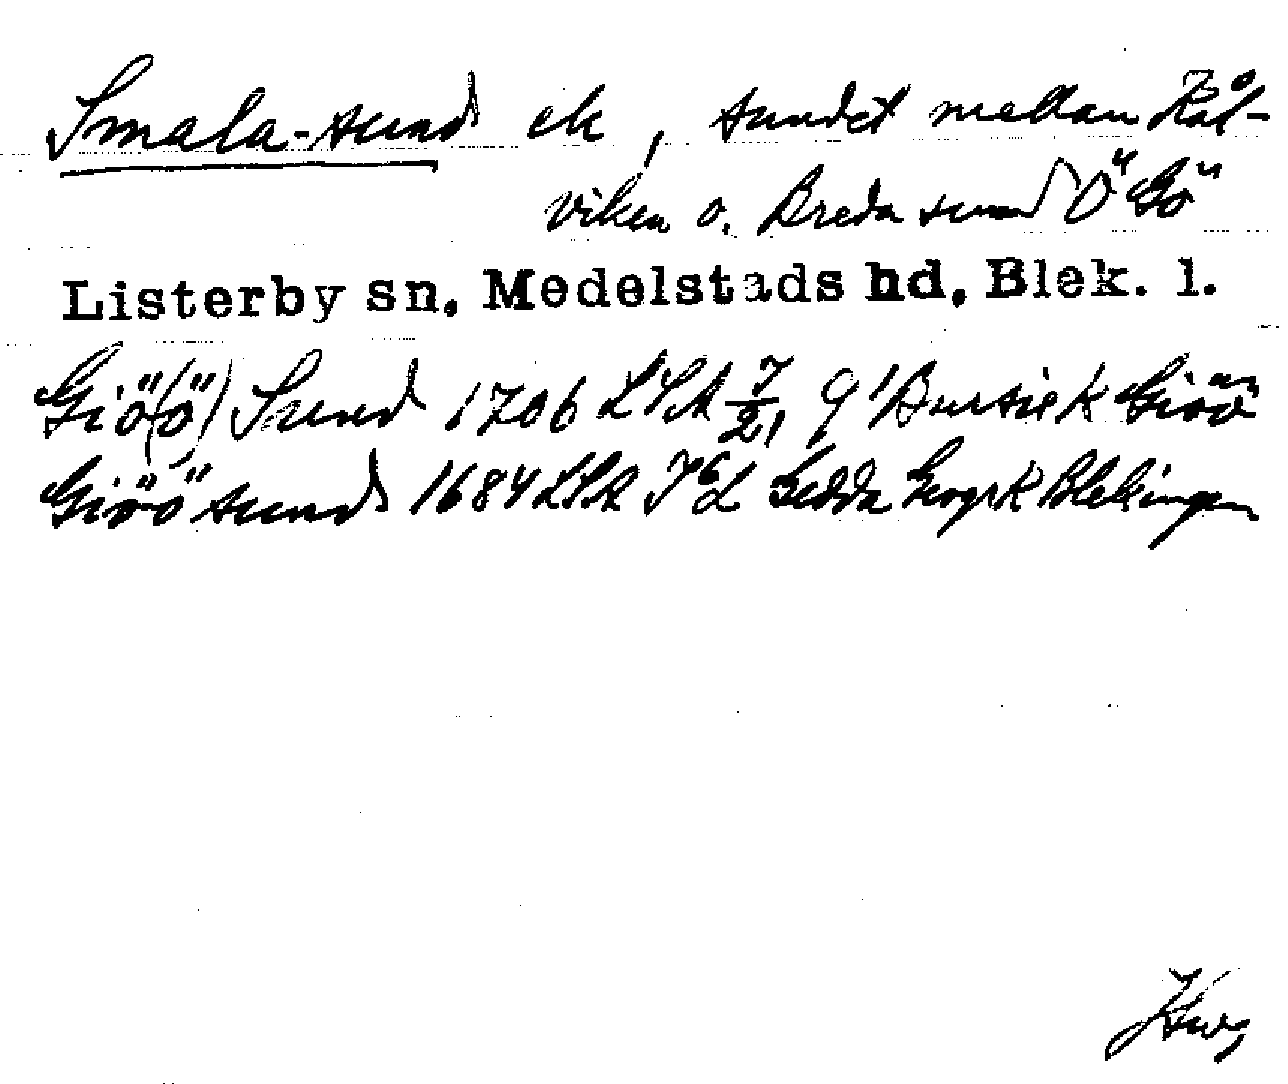 Smala-sund ek, sundet mellan Kål-
viken o. Breda sund Ö Gö
Listerby sn, Medelstads hd, Blek. l.
Giö(ö) Sund 1706 LSA 7/2, 9' Bursiek Giöö
Giöö sund 1684 LSA Gedda Geogr K Blekingen